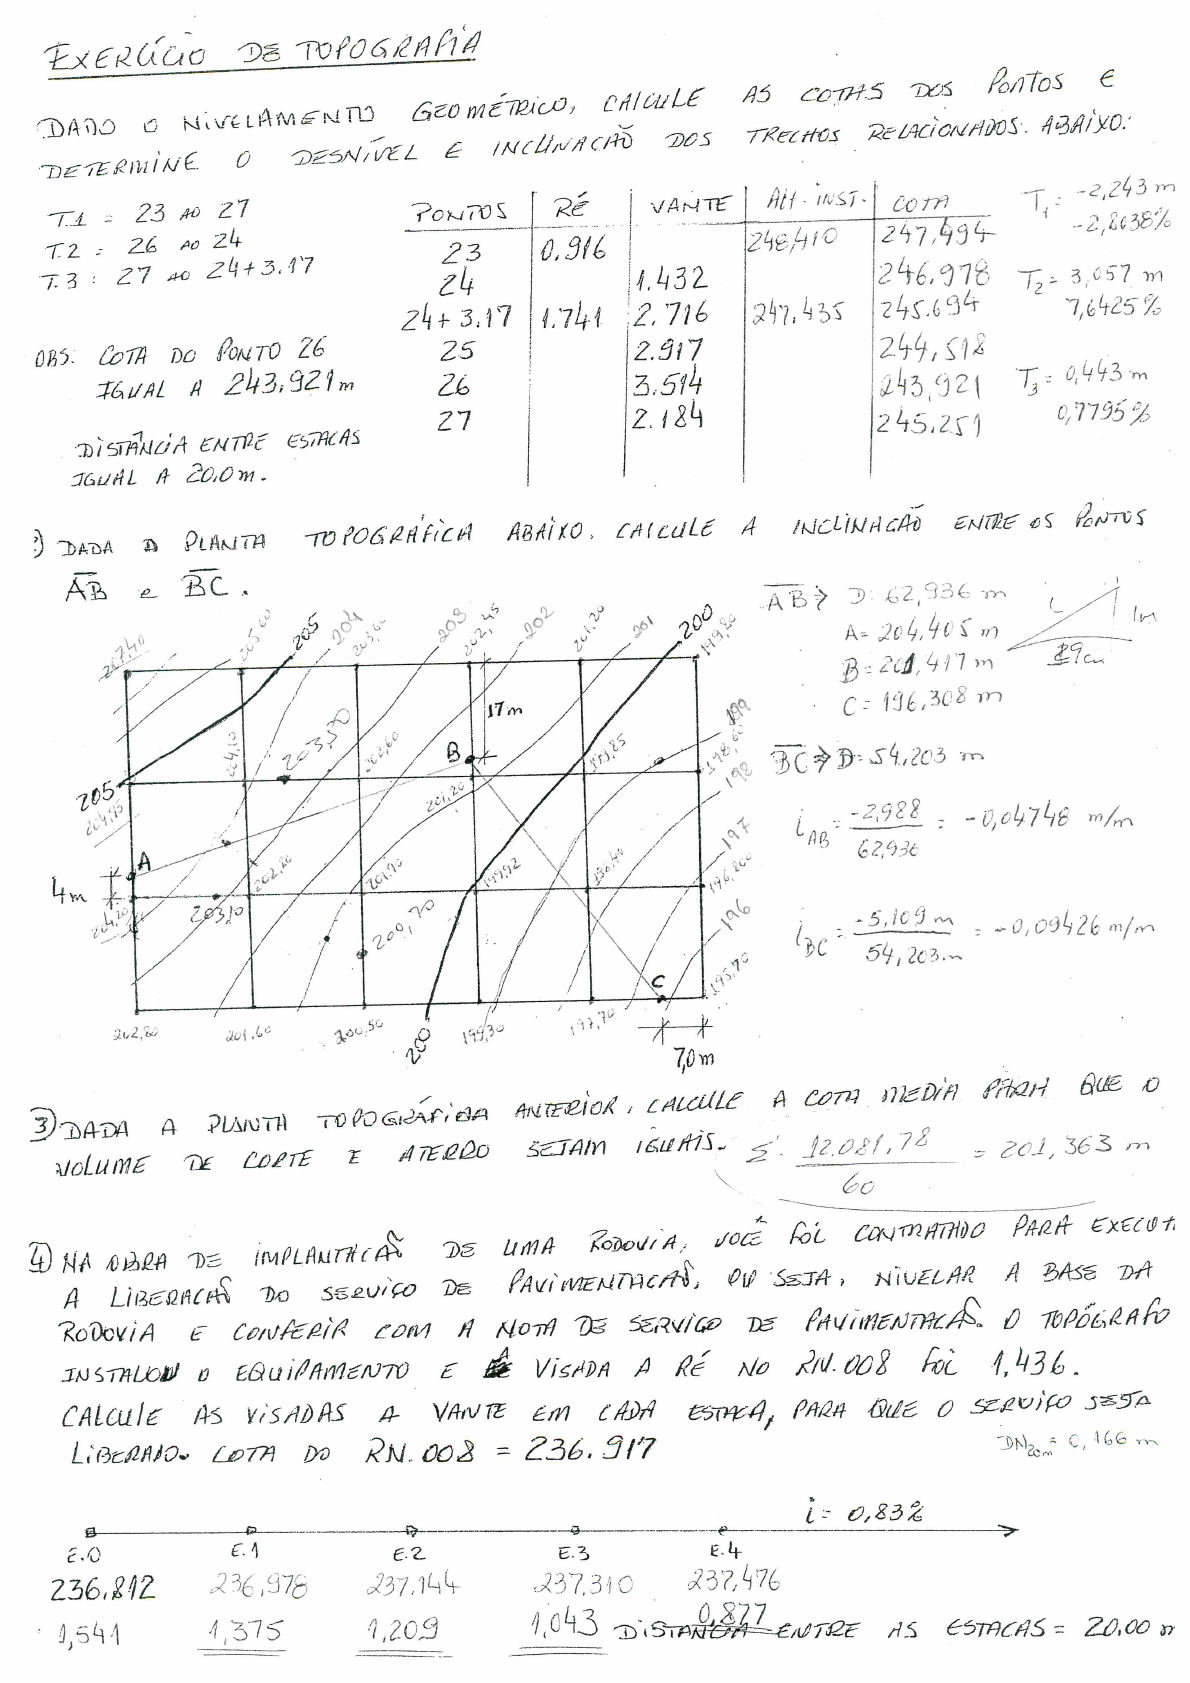 EXERCÍCIO DE TOPOGRAFIA
DADO O NIVELAMENTO GEOMÉTRICO, CALCULE AS COTAS DOS PONTOS E
DETERMINE O DESNÍVEL E INCLINAÇÃO DOS TRECHOS RELACIONADOS. ABAIXO:
T.1 = 23 AO 27
T.2 = 26 AO 24
T.3 : 27 AO 24+3.17
OBS: COTA DO PONTO 26
IGUAL A 243,921m
DISTÂNCIA ENTRE ESTACAS
IGUAL A 20.0m.
PONTOS RÉ VANTE Alt. INST. COTA
23 0.916 248,410 247,494
24 1.432 246.978
24+3.17 1.741 2.716 247.435 245.694
25 2.917 244,518
26 3.514 243,921
27 2.184 245.251
T1= -2,243 m
-2,8038%
T2= 3,057 m
7,6425%
T3= 0,443 m
0,7795%
2) DADA A PLANTA TOPOGRÁFICA ABAIXO. CALCULE A INCLINAÇÃO ENTRE OS PONTOS
AB e BC.
AB⇒ D: 62,936 m
A= 204,405 m
B= 201,417 m
C= 196,308 m
L 1m
BC⇒ D= 54,203 m
iAB= -2,988 / 62,936 = -0,04748 m/m
iBC= -5,109 m / 54,203m = -0,09426 m/m
207,40 205,60 205 204 203,60 203 202,45 202 201,20 201 200 199,80
17m
B
203,50 204,10 202,60 201,20 199,85 199 198,60 198
205
204,75
A
4m
204,20 203,10 202,20 201,90 199,92 197 196,800
200,70 196
C
195,70
202,80 201.60 200,50 200 199,30 197,70
7,0m
3) DADA A PLANTA TOPOGRÁFICA ANTERIOR, CALCULE A COTA MEDIA PARA QUE O
VOLUME DE CORTE E ATERRO SEJAM IGUAIS. Σ: 12.081,78 / 60 = 201,363 m
4) NA OBRA DE IMPLANTACÃO DE UMA RODOVIA, VOCÊ FOI CONTRATADO PARA EXECUT
A LIBERACÃO DO SERVIÇO DE PAVIMENTACÃO, OU SEJA, NIVELAR A BASE DA
RODOVIA E CONFERIR COM A NOTA DE SERVIÇO DE PAVIMENTACÃO. O TOPÓGRAFO
INSTALOU O EQUIPAMENTO E A VISADA A RÉ NO RN.008 FOI 1,436.
CALCULE AS VISADAS A VANTE EM CADA ESTACA, PARA QUE O SERVIÇO SEJA
LIBERADO. COTA DO RN.008 = 236.917
DN20m = 0,166 m
i= 0,83%
E.0 E.1 E.2 E.3 E.4
236.812 236,978 237.144 237.310 237,476
1,541 1,375 1,209 1,043 0,877
DISTANCIA ENTRE AS ESTACAS = 20.00 m